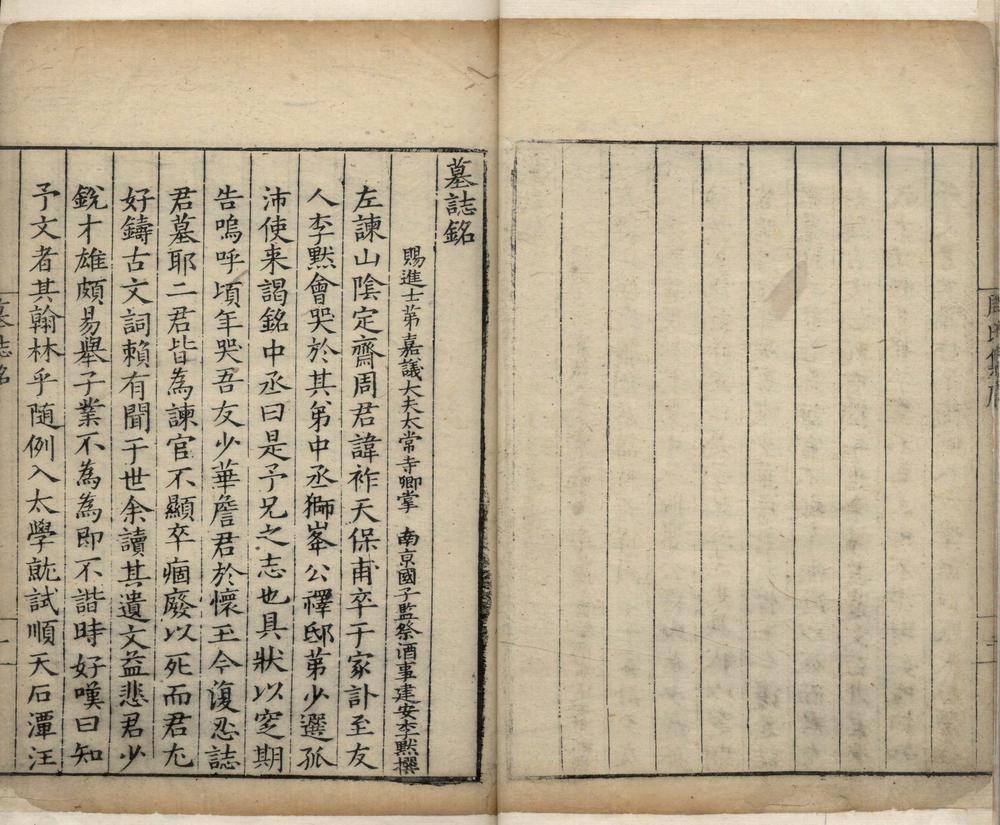 墓誌銘
賜進士第嘉議大夫太常寺卿掌 南京國子監祭酒事建安李默撰
左諫山陰定齋周君諱祚天保甫卒于家訃至友
人李默會哭於其弟中丞獅峯公襗邸第少選孤
沛使来謁銘中丞曰是予兄之志也具狀以窆期
告嗚呼頃年哭吾友少華詹君於懷玉今復忍誌
君墓耶二君皆為諫官不顯卒痼廢以死而君尤
好鑄古文詞頼有聞于世余讀其遺文益悲君少
銳才雄頗易舉子業不為為即不諧時好嘆曰知
予文者其翰林乎隨例入太學就試順天石潭汪
墓誌銘